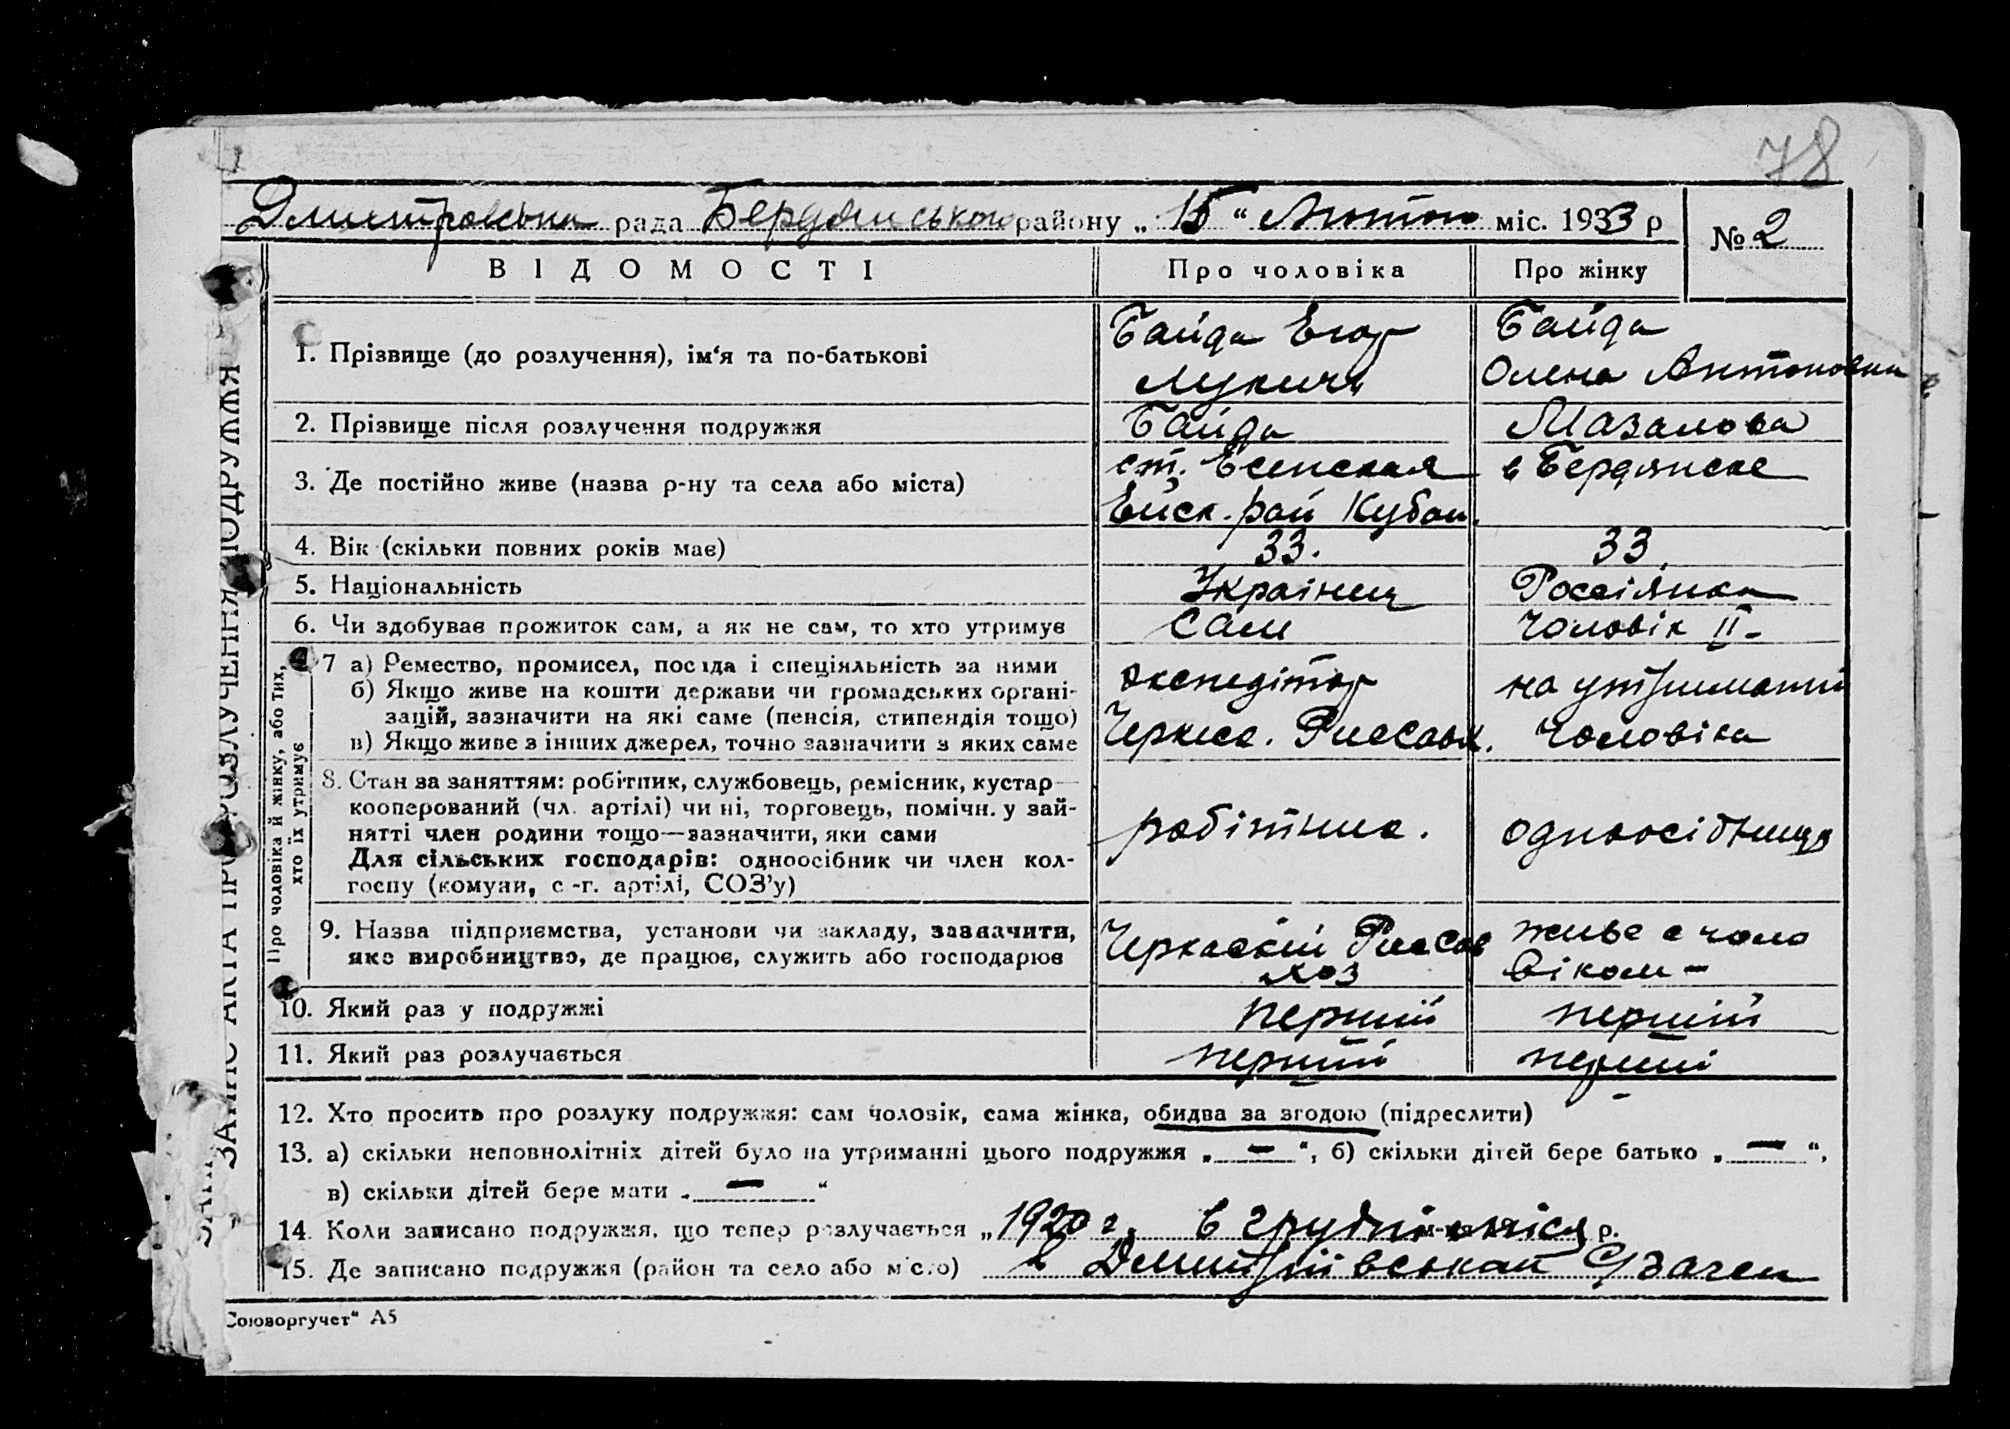 78
Дмитровська рада Бердянського району „ 15 “ Лютого міс. 1933 р
№ 2
ВІДОМОСТІ
Про чоловіка
Про жінку
1. Прізвище (до розлучення), ім‘я та по-батькові
Байда Егор
Лукич
Байда
Олена Антоновна
2. Прізвище після розлучення подружжя
Байда
Мазалова
3. Де постійно живе (назва р-ну та села або міста)
ст. Есенская
Ейск. рай Кубан.
в Бердянске
4. Вік (скільки повних років має)
33.
33
5. Національність
Українец
Россіянка
6. Чи здобував прожиток сам, а як не сам, то хто утримує
Сам
Чоловік ІІ-
Про чоловіка й жінку, або тих,
хто їх утримує
7 а) Ремество, промисел, посада і спеціяльність за ними
б) Якщо живе на кошти держави чи громадських органі-
зацій, зазначити на які саме (пенсія, стипендія тощо)
в) Якщо живе з інших джерел, точно зазначити з яких саме
експедітор
на утриманні
чоловіка
8. Стан за заняттям: робітник, службовець, ремісник, кустар—
кооперований (чл. артілі) чи ні, торговець, помічн. у зай-
нятті член родини тощо—зазначити, яки сами
Для сільських господарів: одноосібник чи член кол-
госпу (комуни, с.-г. артілі, СОЗ’у)
робітник.
одноосібница
9. Назва підприємства, установи чи закладу, зазначити,
яке виробництво, де працює, служить або господарює
Черкаскій
хоз
живе с чоло
віком -
10. Який раз у подружжі
перший
перший
11. Який раз розлучається
перший
перший
12. Хто просить про розлуку подружжя: сам чоловік, сама жінка, обидва за згодою (підреслити)
13. а) скільки неповнолітніх дітей було на утриманні цього подружжя „ — “, б) скільки дітей бере батько „ — “,
в) скільки дітей бере мати „ — “
14. Коли записано подружжя, що тепер розлучається „ 1920 г. в грудні місяц р.
15. Де записано подружжя (район та село або місто) в Дмитріївськай
Союзоргучет“ А5
ЗАПИС АКТА ПРО РОЗЛУЧЕННЯ ПОДРУЖЖЯ